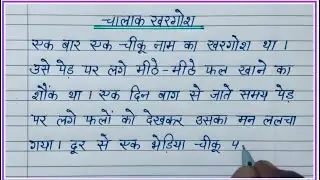 चालाक खरगोश
एक बार एक चीकू नाम का खरगोश था ।
उसे पेड़ पर लगे मीठे-मीठे फल खाने का
शौंक था । एक दिन बाग से जाते समय पेड़
पर लगे फलों को देखकर उसका मन ललचा
गया। दूर से एक भेड़िया चीकू प